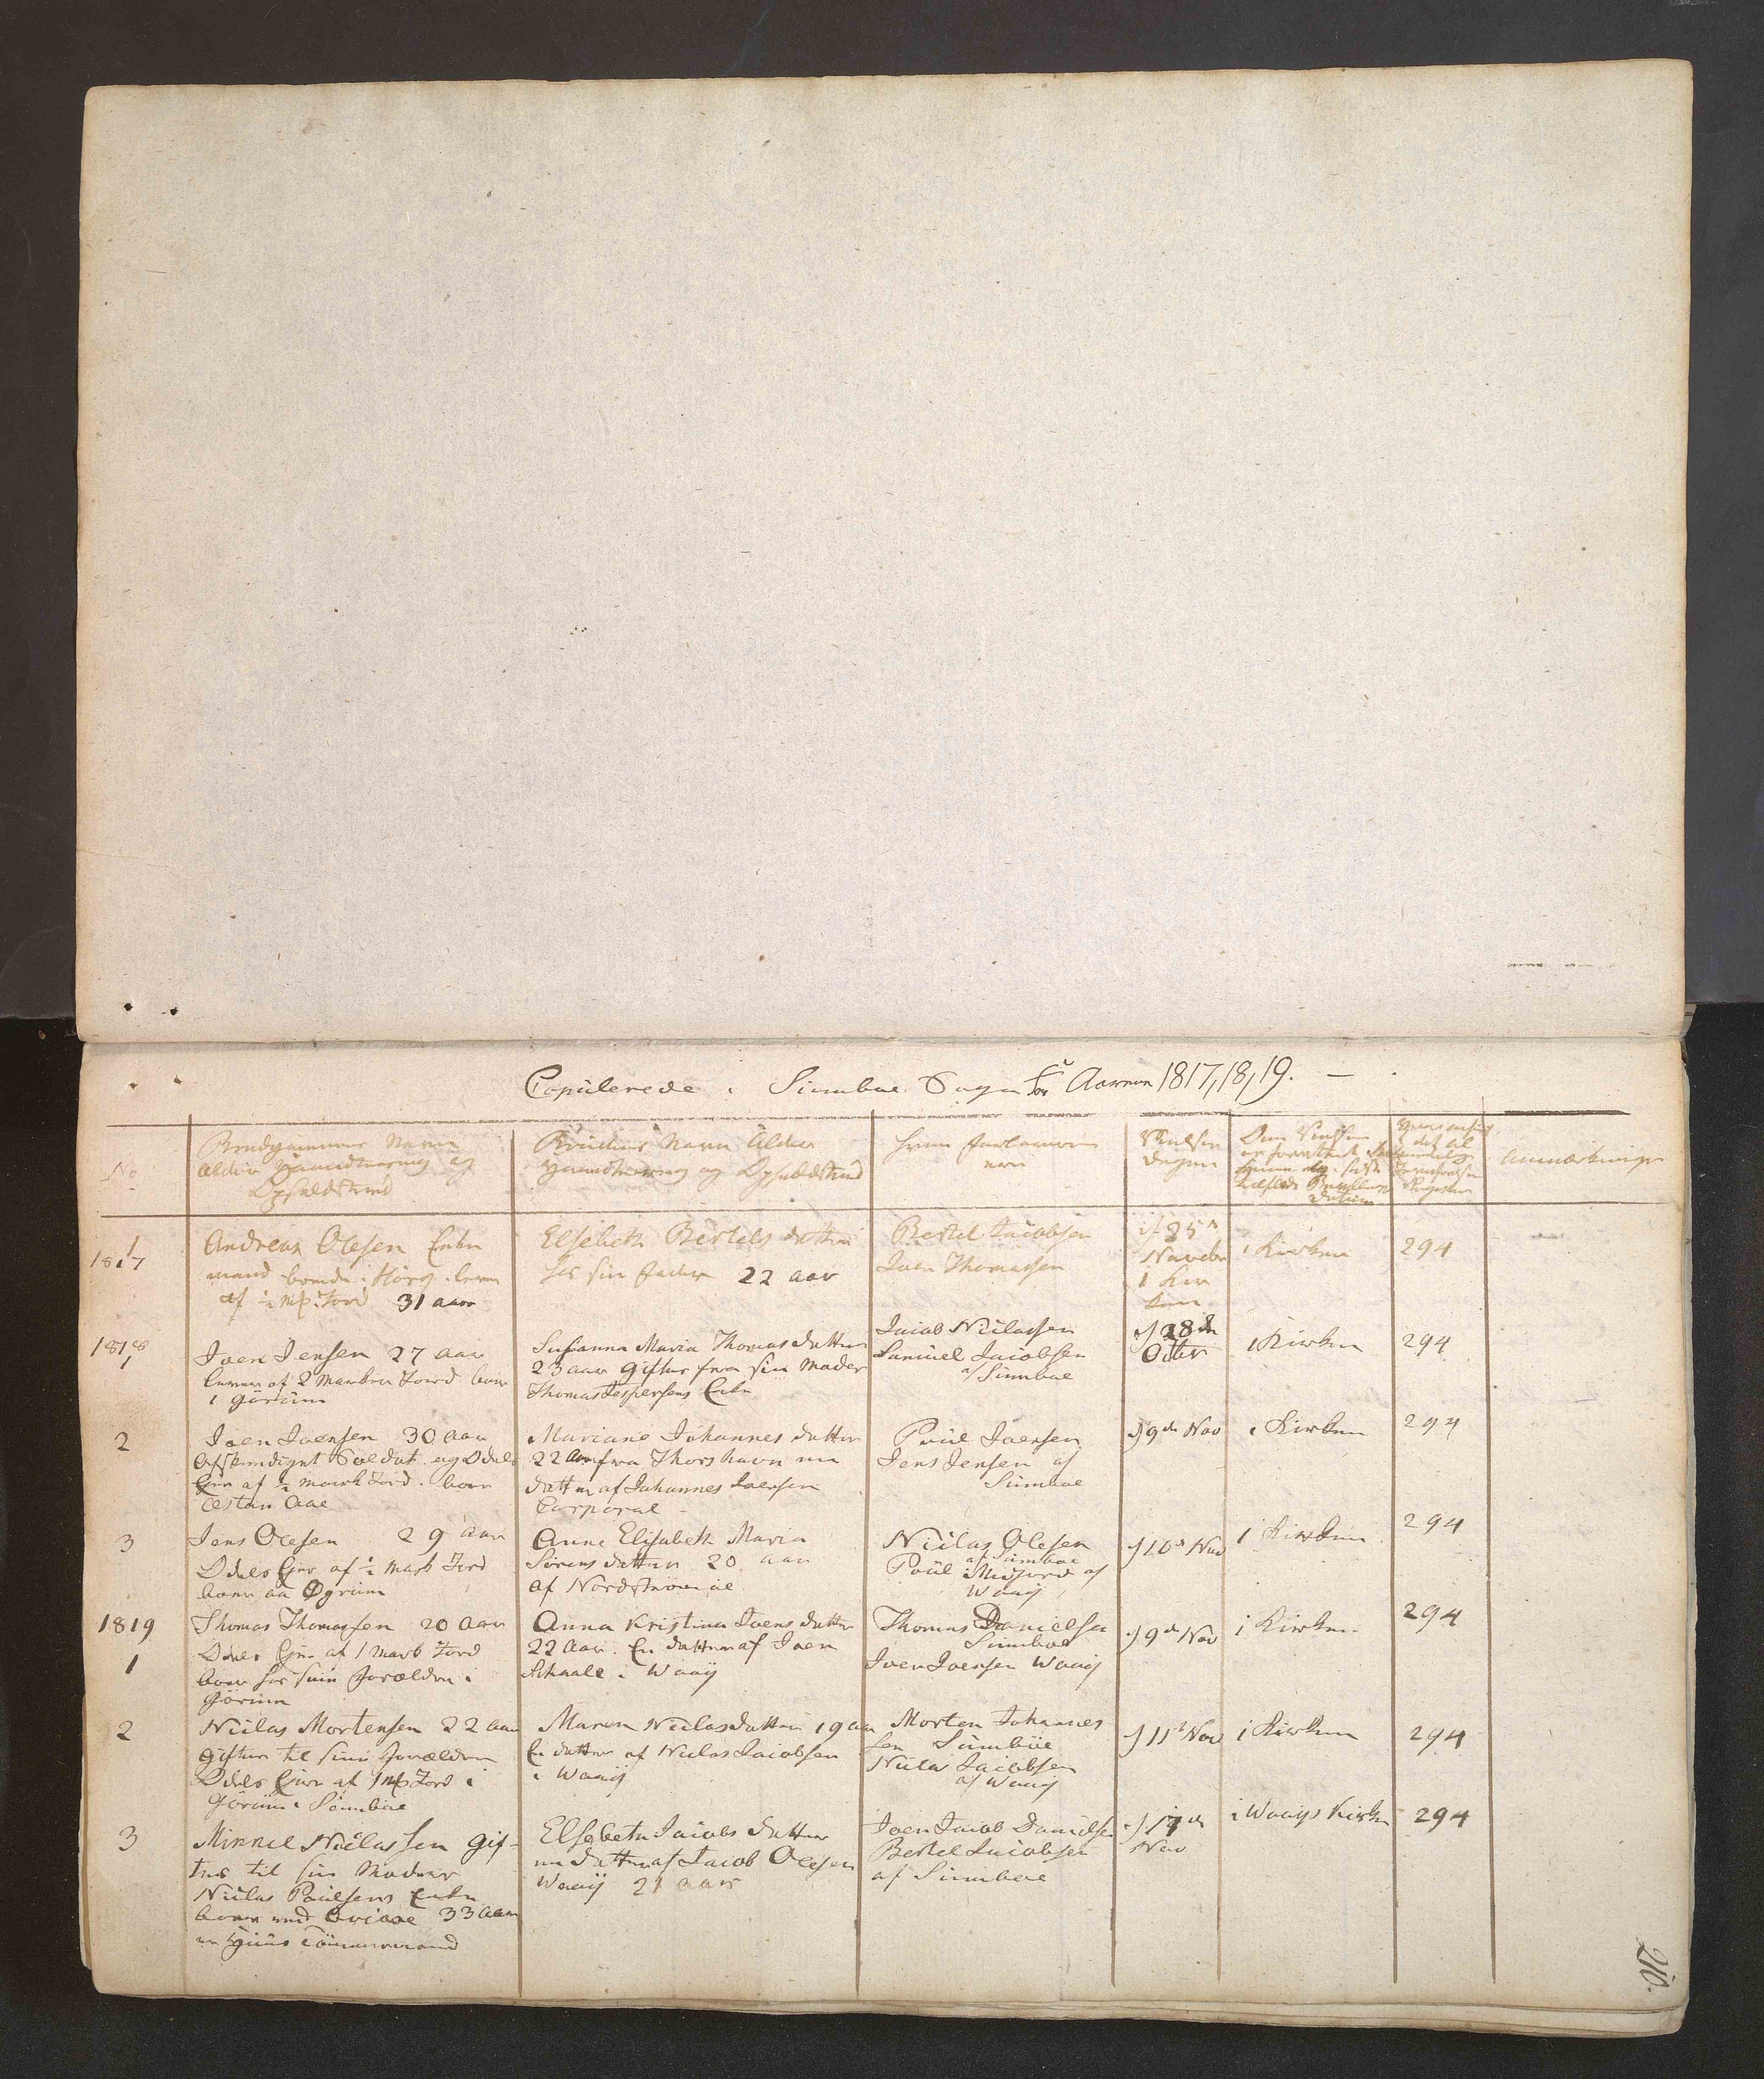 Copulerede i Sumboe Sogn for Aarene 1817, 18, 19. —
No
Brudgommens Navn
Alder Haandtering og
Opholdsted
Brudens Navn Alder
Haandtering og Opholdsted
hvem Forloverne
ere
Vielses
Dagen
Om Vielsen
er forrettet i
Kirken
Anmærkninger
1
1817
Andreas Olesen Enke
mand boende i Hørg lever
af ½ mk: Jord 31 aar
Elsebeth Bertels datter
hos sin Fader 22 aar
Bertel Jacobsen
Joen Thomassen
d 25
Novebr
i Kir
ken
i Kirken
294
1818
1
Joen Jensen 27 aar
lever af 2 Marker Jord boer
i Gørum
Susanna Maria Thomasdatter
23 aar giftes fra sin Moder
Thomas Jespersens Enke
Jacob Niclassen
Samuel Jacobsen
af Sumboe
d 28de
Octbr
i Kirken
294
2
Joen Joensen 30 aar
Afskeediget Soldat og Odels
Ejer af ½ Mark Jord. boer
Østan Aae
Mariane Johannes datter
22 Aar fra Thorshavn en
datter af Johannes Joensen
Corporal
Poul Joensen
Jens Jensen af
Sumboe
d 9de Nov
i Kirken
294
3
Jens Olesen 29 aar
Odels Ejer af ½ Mark Jord
boer aa Øgrum
Anne Elisabeth Maria
Sørens datter 20 aar
af Nordstrømøe
Niclas Olesen
af Sumboe
Poul i Midgord af
Waaij
d 10de Nov
i Kirken
294
1819
1
Thomas Thomassen 20 aar
Odels Ejer af 1 Mark Jord
boer hos sine Forældre i
Gørum
Anna Kristina Joens datter
22 Aar. En datter af Joen
Skaale i Waaij
Thomas Danielsen
Sumboe
Joen Joensen Waaij
d 9de Nov
i Kirken
294
2
Niclas Mortensen 22 aar
giftes til sine Forældre
Odels Ejer af 1 mk Jord i
Gørum i Sumboe
Maren Niclasdatter 19 aar
En datter af Niclas Jacobsen
i Waaij
Morten Johannes
sen Sumboe
Niclas Jacobsen
af Waaij
d 11te Nov
i Kirken
294
3
Minnel Niclassen gif-
tes til sin Moder
Niclas Poulsens Enke
boer ved 33 Aar
en Huus Tømmermand
Elsebeta Jacobs datter
en datter af Jacob Olesen
Waaij 21 aar
Joen Jacob Danielsen
Bertel Jacobsen
af Sumboe
d 17de
Nov
i Waaijs Kirke
294
210.